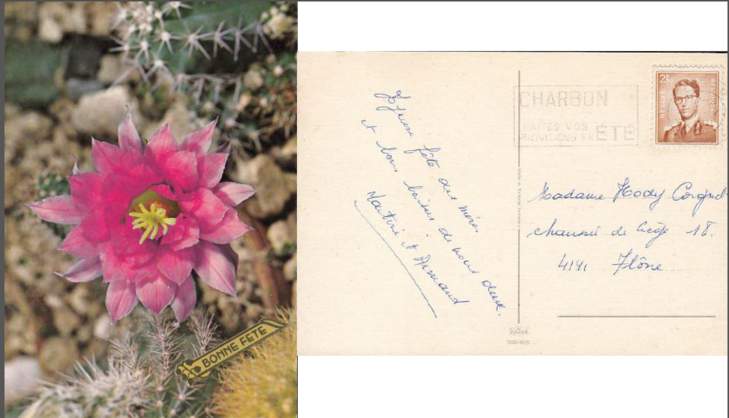 BONNE FÊTE
Heureuse fête des mères
et bons baisers de nous deux.
et Armand
CHARBON
FAITES VOS
PROVISIONS EN ÉTÉ
2F
Madame Hody
chaussée de Liège 18.
4141 Flône